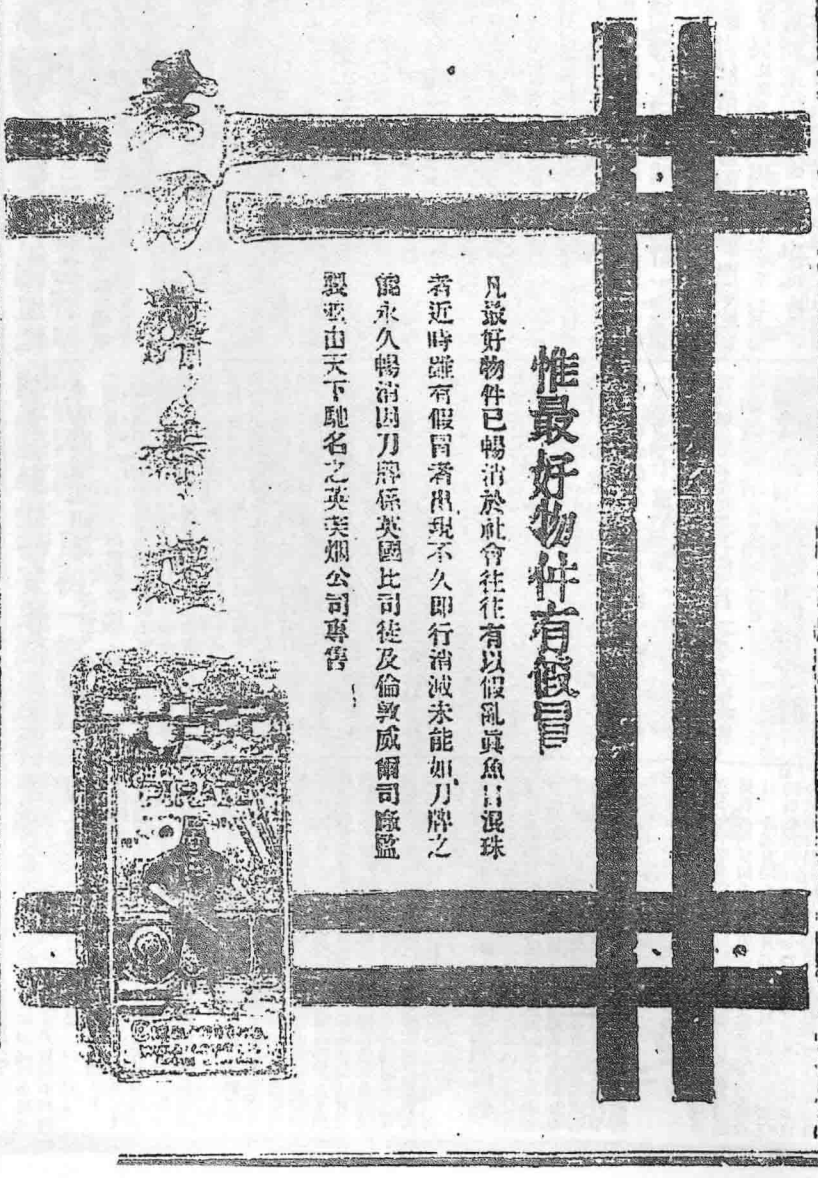 惟最好物件有假冒
凡最好物件已暢消於社會往往有以假亂眞魚目混珠
者近時雖有假冒者出現不久即行消滅未能如刀牌之
能永久暢消因刀牌係英國比司徒及倫敦威爾司廠監
製並由天下馳名之英美烟公司專售
老刀牌香烟
PIRATE
Cigarettes